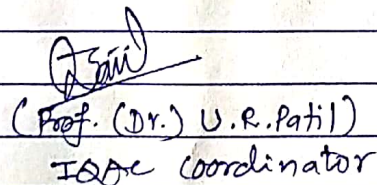 (Prof. (Dr.) U.R.Patil)
IQAC Coordinator